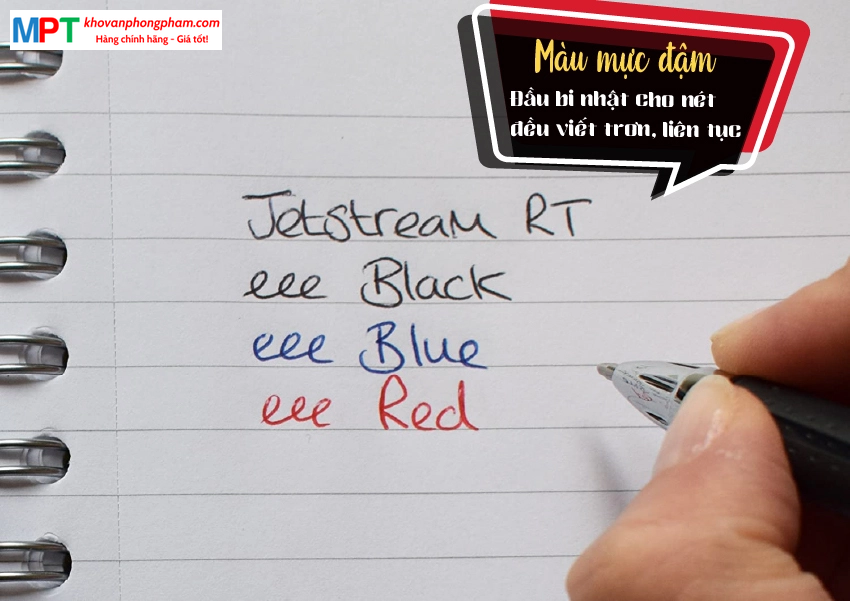 MPT
khovanphongpham.com
Hàng chính hãng - Giá tốt!
Màu mực đậm
Đầu bi nhật cho nét
đều viết trơn, liên tục
Jetstream RT
eee Black
eee Blue
eee Red